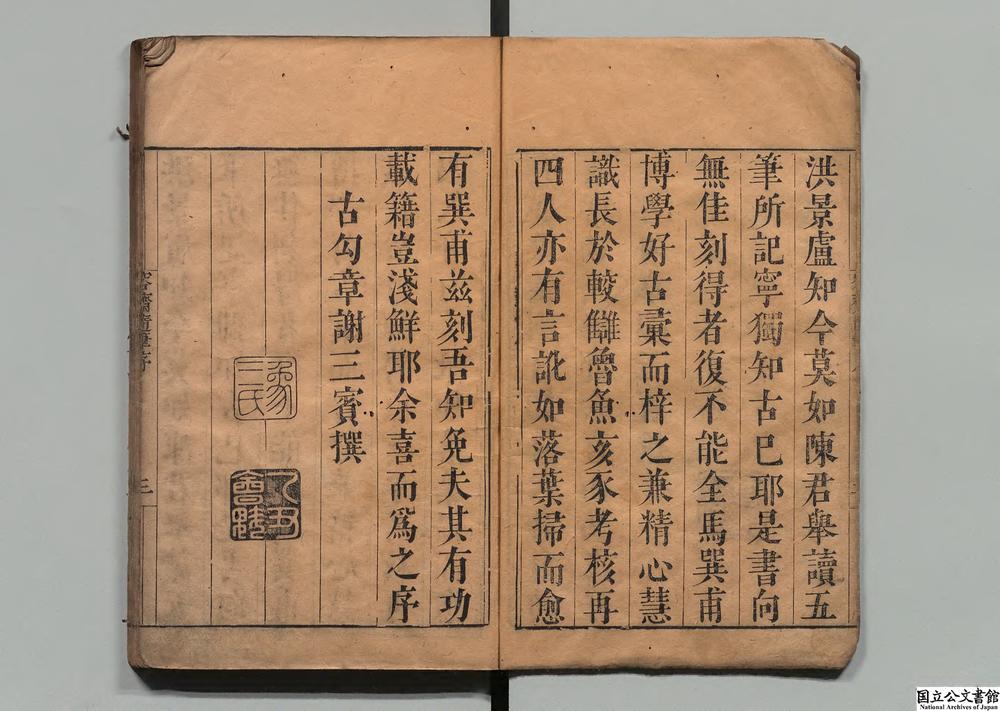 洪景盧知今莫如陳君舉讀五
筆所記寧獨知古已耶是書向
無佳刻得者復不能全馬巽甫
博學好古彙而梓之兼精心慧
識長於較讎魯魚亥豕考核再
四人亦有言訛如落葉掃而愈
有巽甫兹刻吾知免夫其有功
載籍豈淺鮮耶余喜而爲之序
古勾章謝三賓撰
容齋隨筆序
三
国立公文書館
National Archives of Japan